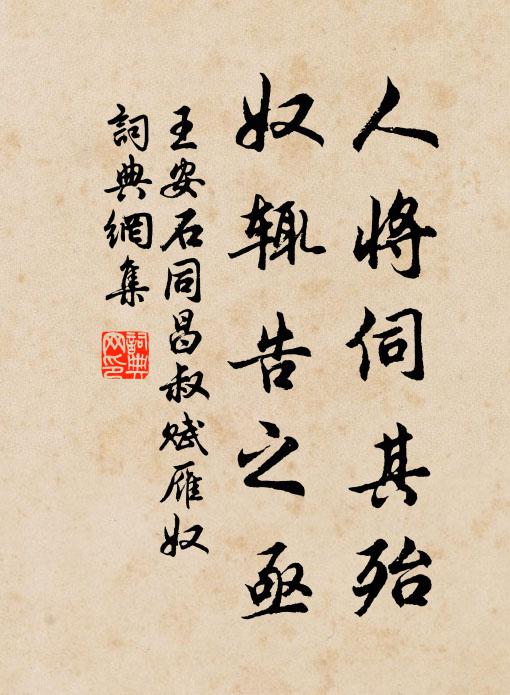 人将伺其殆
奴辄告之亟
王安石同昌叔赋雁奴
詞典網集
詞典网印